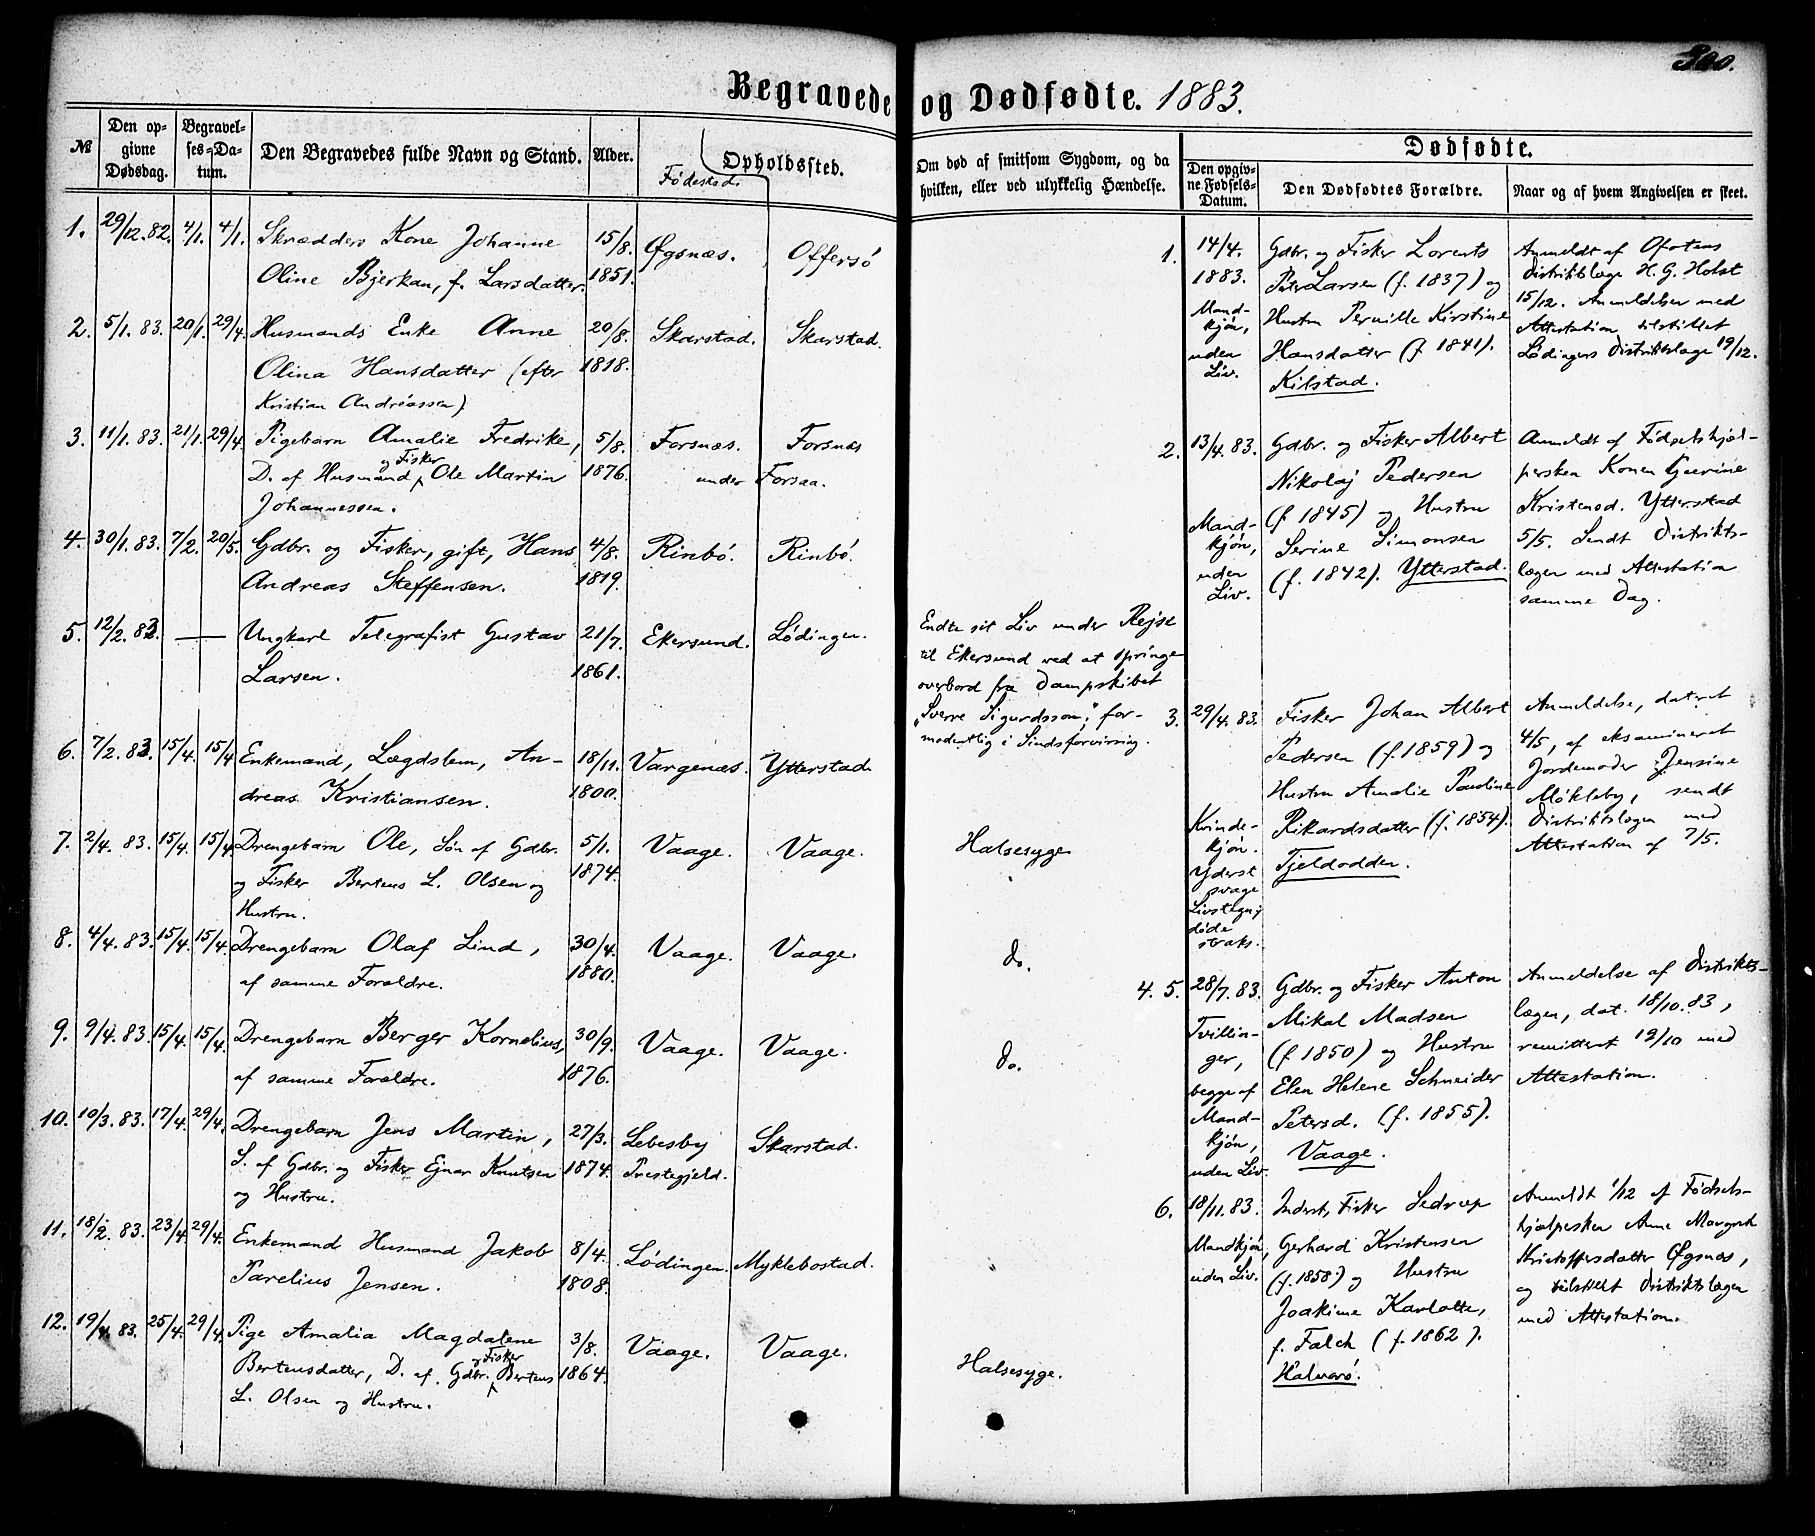 300.
Begravede og Dødfødte. 1883.
№
Den opgivne Dødsdag.
Begravelses-Datum.
Den Begravedes fulde Navn og Stand.
Alder.
Fødested.
Opholdssted.
Om død af smitsom Sygdom, og da hvilken, eller ved ulykkelig Hændelse.
Dødfødte.
Den opgivne Fødsels-Datum.
Den Dødfødtes Forældre.
Naar og af hvem Angivelsen er skeet.
1. 29/12.82. 4/1. 4/1. Skrædders Kone Johanne 15/8. Øgsnæs. Offersø
Oline Bjerkan, f. Larsdatter. 1851.
2. 5/1. 83. 20/1. 29/4. Husmands Enke Anne 20/8. Skarstad. Skarstad.
Olina Hansdatter (efter 1818.
Kristian Andreassen)
3. 11/1. 83. 21/1. 29/4. Pigebarn Amalie Fredrike, 5/8. Forsnæs. Forsnæs
D. af Husmand og Fisker Ole Martin 1876. under Forsaa.
Johannessen.
4. 30/1. 83. 7/2. 20/5. Gdbr. og Fisker, gift, Hans 4/8. Rinbö. Rinbö.
Andreas Steffensen. 1819.
5. 12/2. 83. — Ungkarl Telegrafist Gustav 21/7. Ekersund. Lödingen.
Larsen. 1861.
Endte sit Liv under Rejse
til Ekersund ved at springe
overbord fra Dampskibet
„Sverre Sigurdsson", for-
modentlig i Sindsforvirring.
6. 7/2. 83. 15/4. 15/4 Enkemand, Lægdslem, An- 18/11. Vargenæs. Ytterstad
dreas Kristiansen. 1800.
7. 2/4. 83. 15/4. 15/4 Drengebarn Ole, Sön af Gdbr. 5/1. Vaage. Vaage. Halsesyge
og Fisker Berteus L. Olsen og 1874.
Hustru.
8. 4/4. 83. 15/4. 15/4. Drengebarn Olaf Lind, 30/4. Vaage. Vaage. do.
af samme Forældre. 1880.
9. 9/4. 83. 15/4. 15/4. Drengebarn Berger Kornelius, 30/9. Vaage. Vaage. do.
af samme Forældre. 1876.
10. 10/3. 83. 17/4. 29/4. Drengebarn Jens Martin, 27/3. Lebesby Skarstad.
S. af Gdbr. og Fisker Ejnar Knutsen 1874. Prestegjeld.
og Hustru.
11. 18/2. 83. 23/4. 29/4. Enkemand Husmand Jakob 8/4. Lödingen. Myklebostad.
Parelius Jensen. 1808.
12. 19/4. 83. 25/4. 29/4. Pige Amalia Magdalene 3/8. Vaage. Vaage. Halsesyge.
Berteusdatter, D. af Gdbr. og Fisker Berteus 1864.
L. Olsen og Hustru.
1. 14/4.
1883.
Mand-
kjön,
uden
Liv.
Gdbr. og Fisker Lorents
Peter Larsen (f. 1837) og
Hustru Pernille Kirstine
Hansdatter (f 1841).
Kilstad.
Anmeldt af Ofotens
Distriktslæge H. G. Holst
15/12. Anmeldelsen med
Attestation tilstillet
Lödingens Distriktslæge 19/12.
2. 13/4. 83.
Mand-
kjön,
uden
Liv.
Gdbr. og Fisker Albert
Nikolaj Pedersen
(f. 1845) og Hustru
Serine Simonsen
(f. 1842). Ytterstad.
Anmeldt af Fødselshjæl-
persken Konen Guerine
Kristensd. Ytterstad
5/5. Sendt Distrikts-
lægen med Attestation
samme Dag.
3. 29/4. 83.
Kvinde-
kjön.
Yderst
svage
Livstegn;
døde
straks.
Fisker Johan Albert
Pedersen (f. 1859) og
Hustru Amalie Pauline
Rikardsdatter (f. 1854).
Tjeldodden.
Anmeldelse, dateret
4/5, af eksamineret
Jordemoder Jensine
Mökleby, sendt
Distriktslægen med
Attestation af 7/5.
4. 5. 28/7. 83.
Tvillin-
ger,
begge af
Mand-
kjön,
uden Liv.
Gdbr. og Fisker Anton
Mikal Madsen
(f. 1850) og Hustru
Elen Helene Schneider
Petersd. (f. 1855).
Vaage.
Anmeldelse af Distrikts-
lægen, dat. 18/10. 83,
remitteret 19/10 med
Attestation.
6. 18/11. 83.
Mandkjön,
uden Liv.
Inderst, Fisker Sedrup
Gerhard Kristensen
(f. 1858) og Hustru
Joakime Karlotte,
f. Falch (f. 1862).
Halvarö.
Anmeldt 1/12 af Fødsels-
hjælpersken Anne Margret
Kristoffersdatter Øgsnæs,
og tilstillet Distriktslægen
med Attestation.